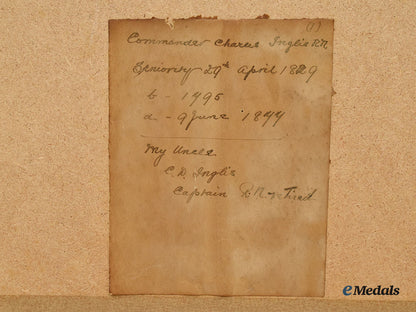 (1)
Commander Charles Inglis R.N
Seniority 29th April 1829
b - 1795
d - 9 June 1844
My Uncle
C. D. Inglis
Captain R.N. Tired
eMedals